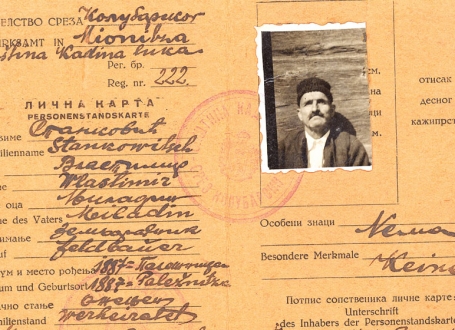 ЕЛСТВО СРЕЗА Колубарског
IRKSAMT IN Mionitza
Kadina luka
Per. бр.
Reg. nr. 222.
ЛИЧНА КАРТА
PERSONENSTANDSKARTE
зиме Станковић
amilienname Stankowitsch
Властимир
me Wlastimir
оца Миладин
me des Vaters Meiladin
нимање Земљорадник
uf Feldbauer
ум и место рођењ 1887
um und Geburtsort 1887 Paležnitza
чно стање Ожењен
milienstand Verheiratet
ем.
cm.
отисак
десног
кажипрст
Особени знаци Нема
Besondere Merkmale Keine
Потпис сопственика личне карте:
Unterschrift
des Inhabers der Personenstandskarte